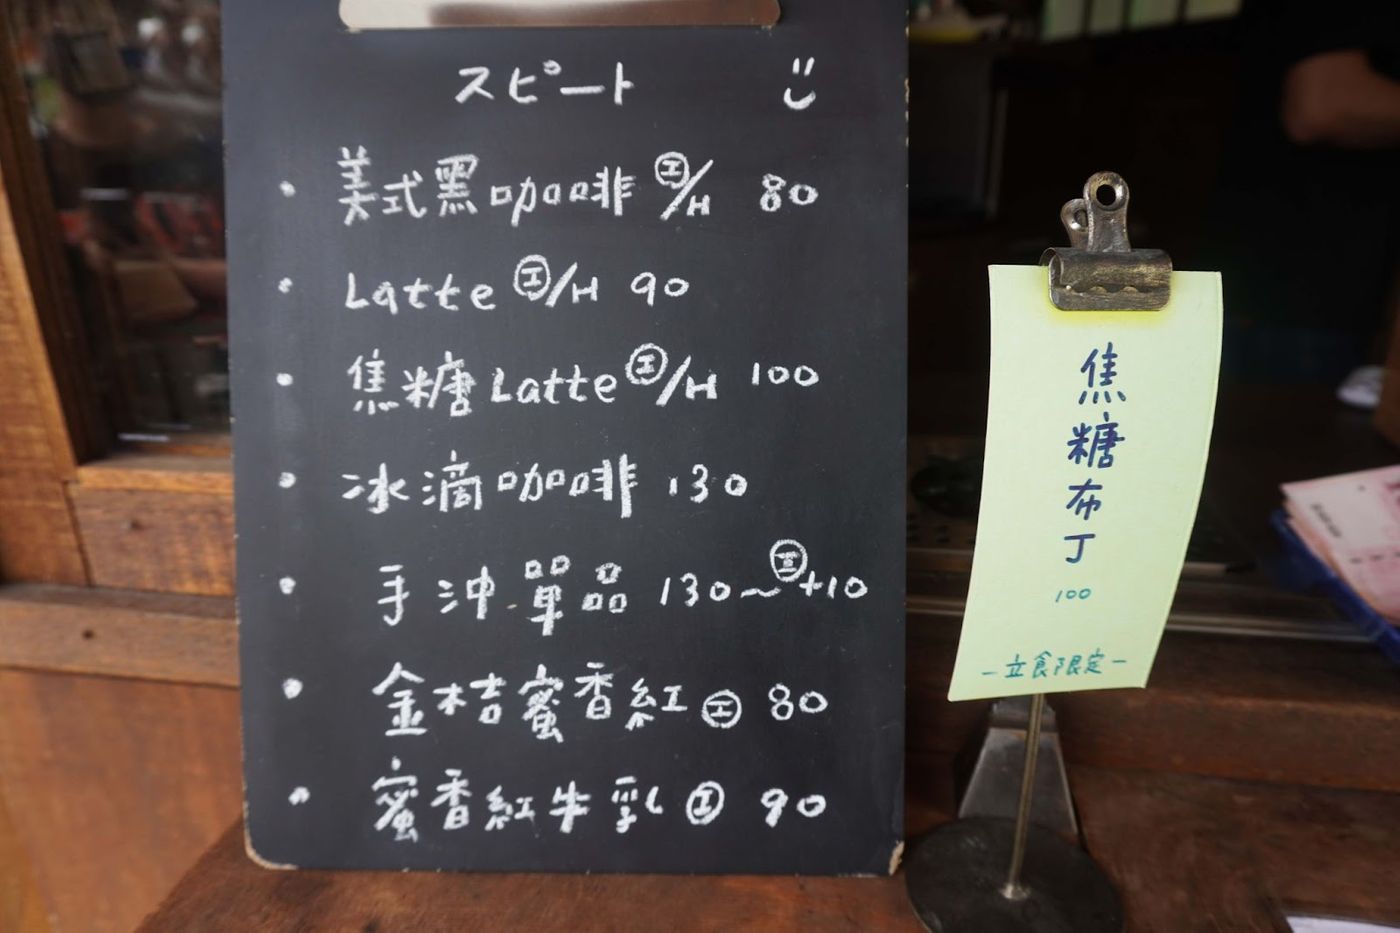 スピート
美式黑咖啡 Ⓘ/H 80
Latte Ⓘ/H 90
焦糖Latte Ⓘ/H 100
冰滴咖啡 130
手沖單品 130~ Ⓘ+10
金桔蜜香紅 Ⓘ 80
蜜香紅牛乳 Ⓘ 90
焦糖布丁
100
-立食限定-